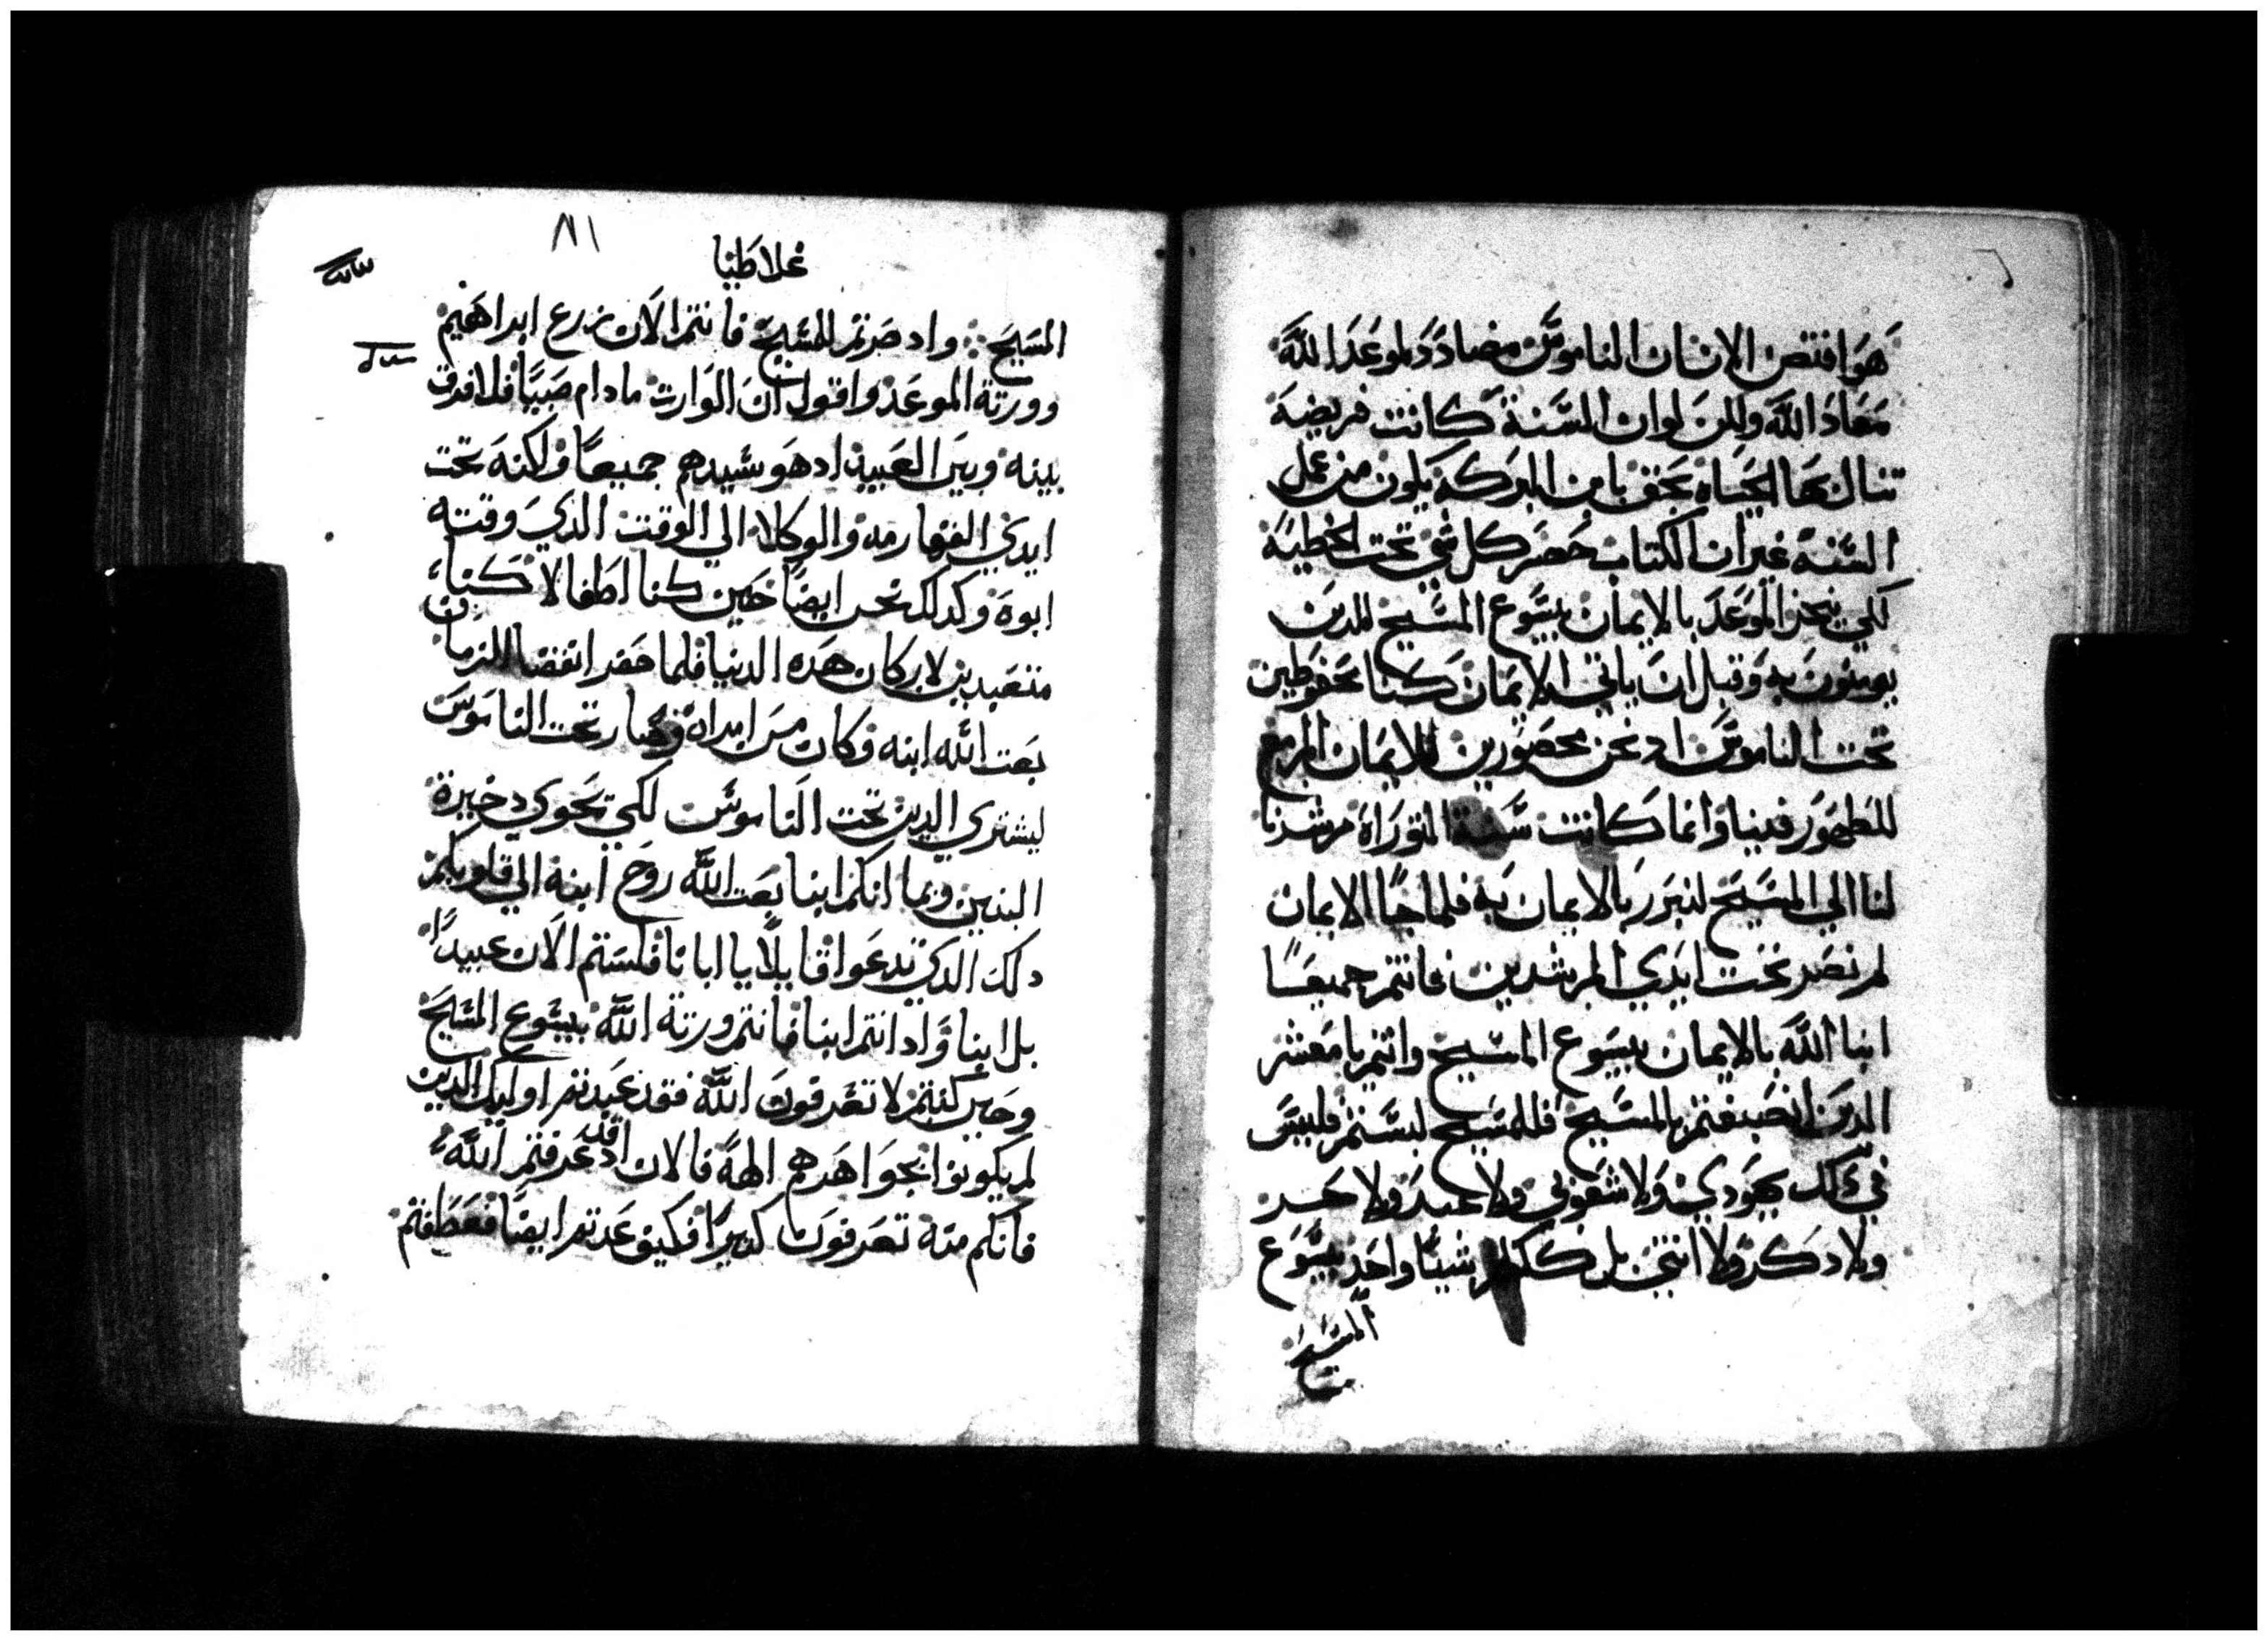 هو افتض الانسان الناموس مضادد لموعد الله
معاد الله ولكن لو ان السنة كانت فريضة
تنال بها الحياة بحق بان البركة يكون من عمل
السنة غير ان الكتاب حصر كل شي تحت الخطية
لكي ينجز الموعد بالايمان بيسوع المسيح للدين
يومنون به وقبل ان ياتي الايمان كنا محفوطين
تحت الناموس اد نحن محصورين للايمان المزمع
للطهور فينا وانما كانت سنة التوراة مرشدنا
لنا الي المسيح لنبرر بالايمان به فلما جا الايمان
لم نصر تحت ايدي المرشدين فانتم جميعا
ابنا الله بالايمان بيسوع المسيح وانتم يا معشر
الدين انصبغتم بالمسيح فللمسيح لبستم فليس
في دلك يهودي ولا شعوبي ولا عبد ولا حر
ولا دكر ولا انتي بل كلكم شيا واحد بيسوع
المسيح
١٨١
غلاطيا
المسيح واد صرتم للمسيح فانتم الان زرع ابراهيم
وورتة الموعد واقول ان الوارت مادام صبيا فلا فرق
بينه وبين العبيد اد هو سيدهم جميعا ولكنه تحت
ايدي القهارمه والوكلا الي الوقت الدي وقته
ابوه وكدلك نحن ايضا حين كنا اطفالا كنا
متعبدين لاركان هده الدنيا فلما حضر انقضا الزمان
بعت الله ابنه فكان من امراة وصار تحت الناموس
ليشتري الدين تحت الناموس لكي نحوي دخيرة
البنين وبما انكم ابنا بعت الله روح ابنه الي قلوبكم
دلك الدي تدعوا قايلا يا ابانا فلستم الان عبيدا
بل ابنا واد انتم ابنا فانتم ورتة الله بيسوع المسيح
وحين كنتم لا تعرفون الله فقد عبدتم اوليك الدين
لم يكونوا بجواهرهم الهة فالان اد قد عرفتم الله
فانكم منه تعرفون كتيرا فكيف عدتم ايضا فعطفتم